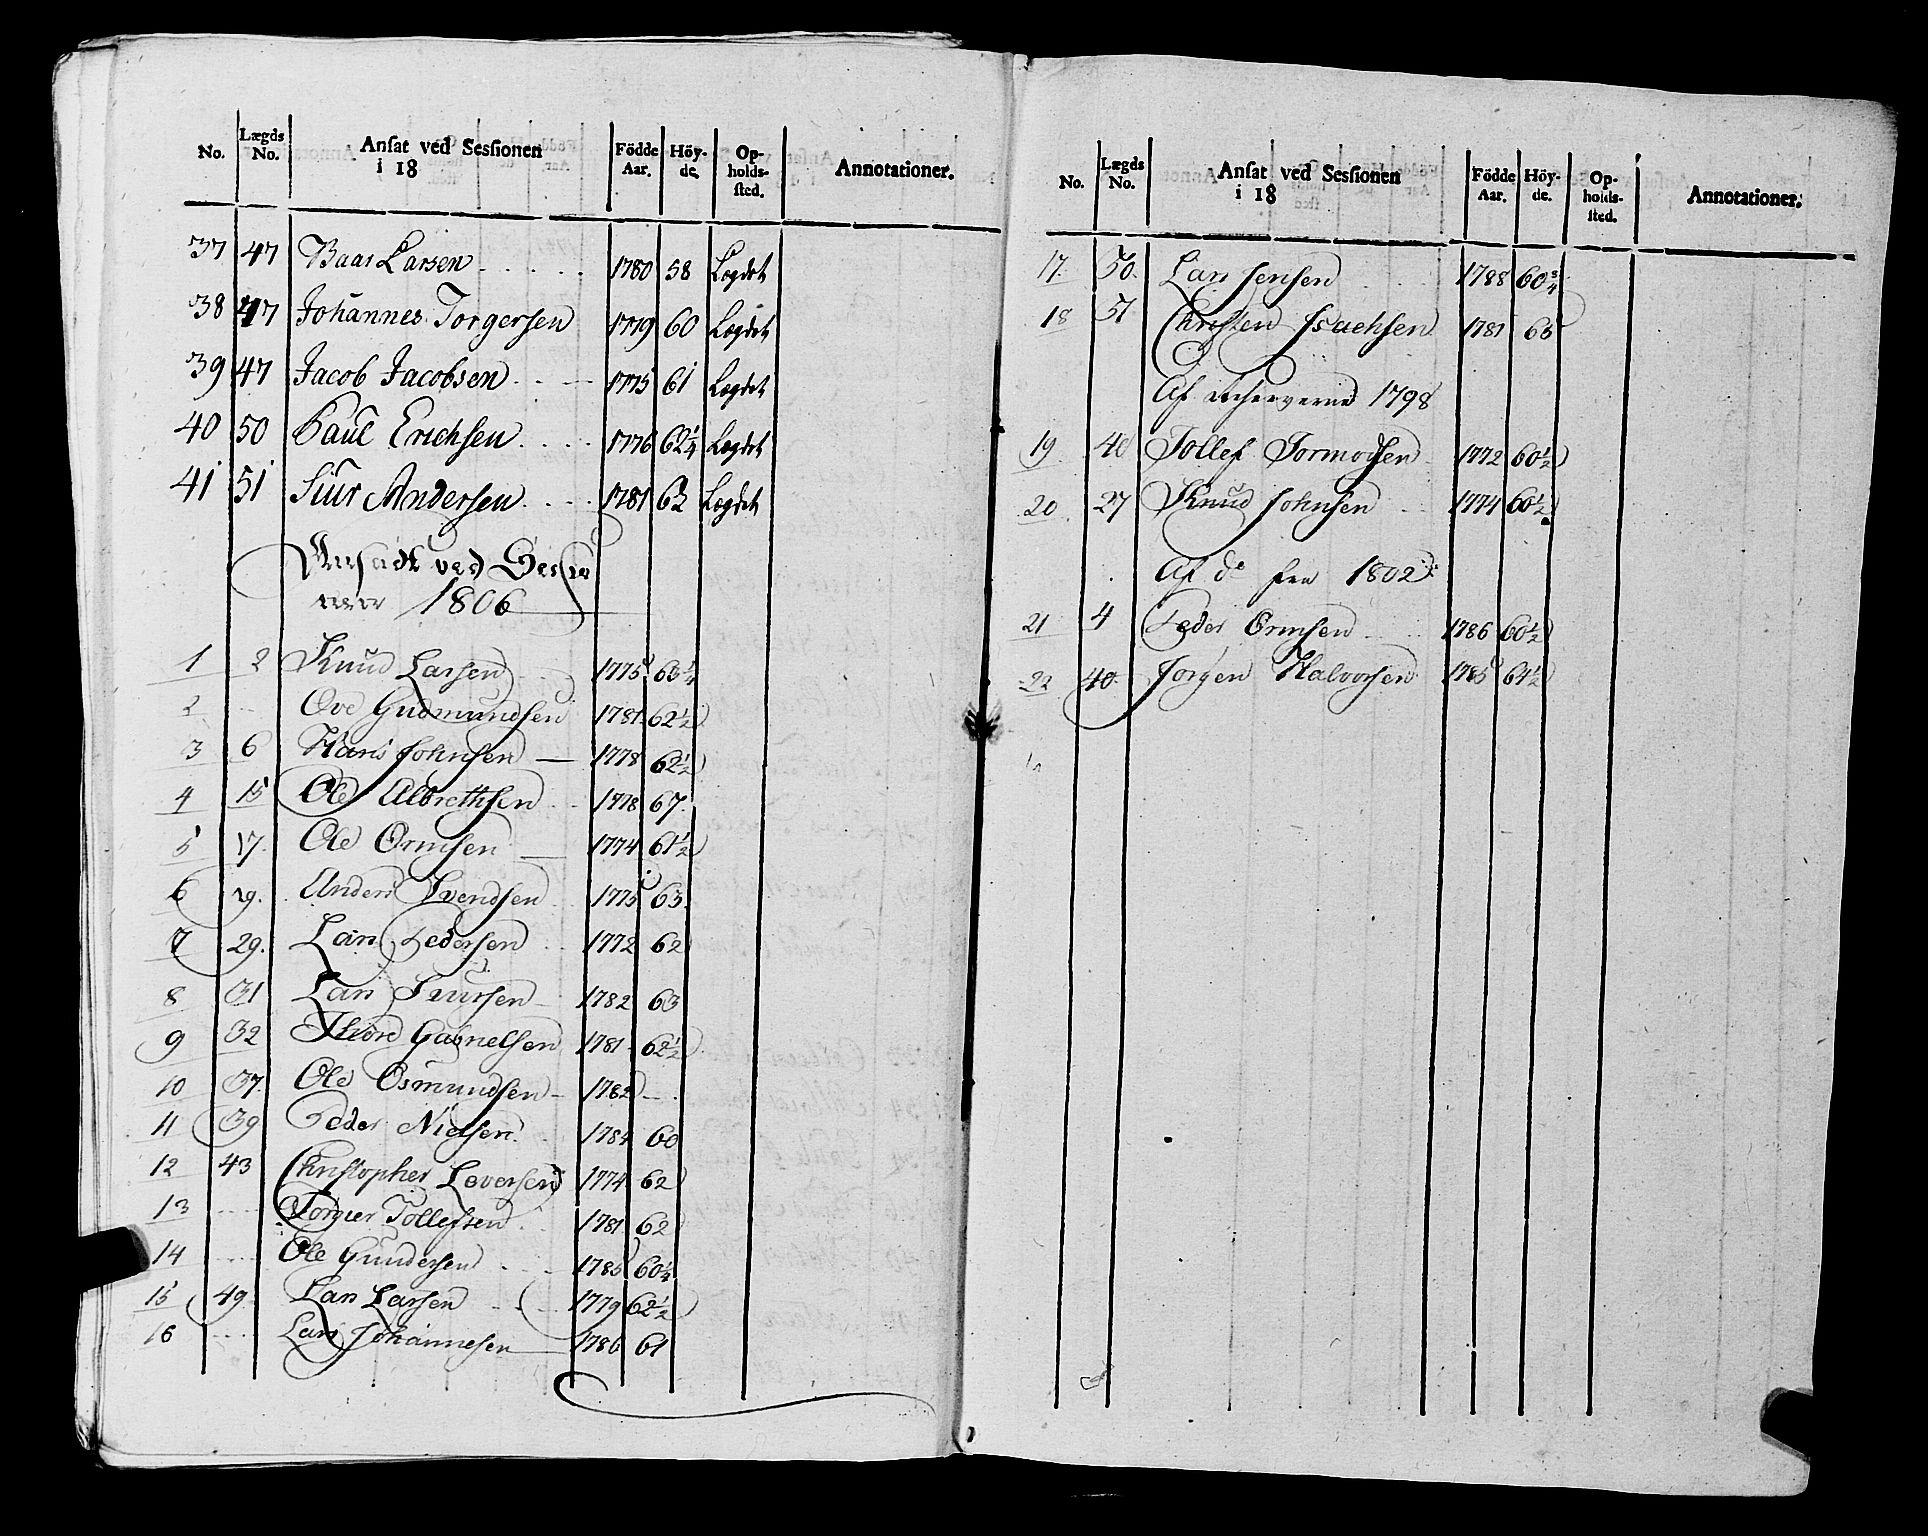 No. Lægds No. Ansat ved Sessionen i 18 Födde Aar. Höyde. Opholdssted. Annotationer.
37 47 Baar Larsen 1780 58 Lægdet
38 47 Johannes Torgersen 1779 60 Lægdet
39 47 Jacob Jacobsen 1775 61 Lægdet
40 50 Paul Erichsen 1776 62 1/4 Lægdet
41 51 Siur Andersen 1781 63 Lægdet
Ansadt ved Sessio
nen 1806
1 2 Knud Larsen 1775 63 1/4
2 Ove Gudmundsen 1781 62 1/2
3 6 Hans Johnsen 1778 62 1/2
4 15 Ole Albrethsen 1778 67
5 17 Ole Ormsen 1774 61 1/2
6 19. Anders Svendsen 1775 63
7 29. Lars Pedersen 1772 62
8 31 Lars Siursen 1782 63
9 32 Thore Gabrielsen 1781 62 1/2
10 37. Ole Osmundsen 1782
11 39 Peder Nielsen 1784 60
12 43 Christopher Leversen 1774 62
13 Torgier Tollefsen 1781 62
14 Ole Gundersen 1785 60 1/4
15 49 Lars Larsen 1779 62 1/2
16 Lars Johannesen 1786 61
No. Lægds No. Ansat ved Sessionen i 18 Födde Aar. Höyde. Opholdssted. Annotationer.
17. 50. Lars Jensen 1788 60 3/4
18 51 Christen Isachsen 1781 65
Af 1798
19 40 Tollef Tormodsen 1772 60 1/2
20 27 Knud Johnsen 1774 60 1/2
Af do fra 1802
21 4 Peder Ormsen 1786 60 1/2
22 40 Jörgen Halvorsen 1785 64 1/2